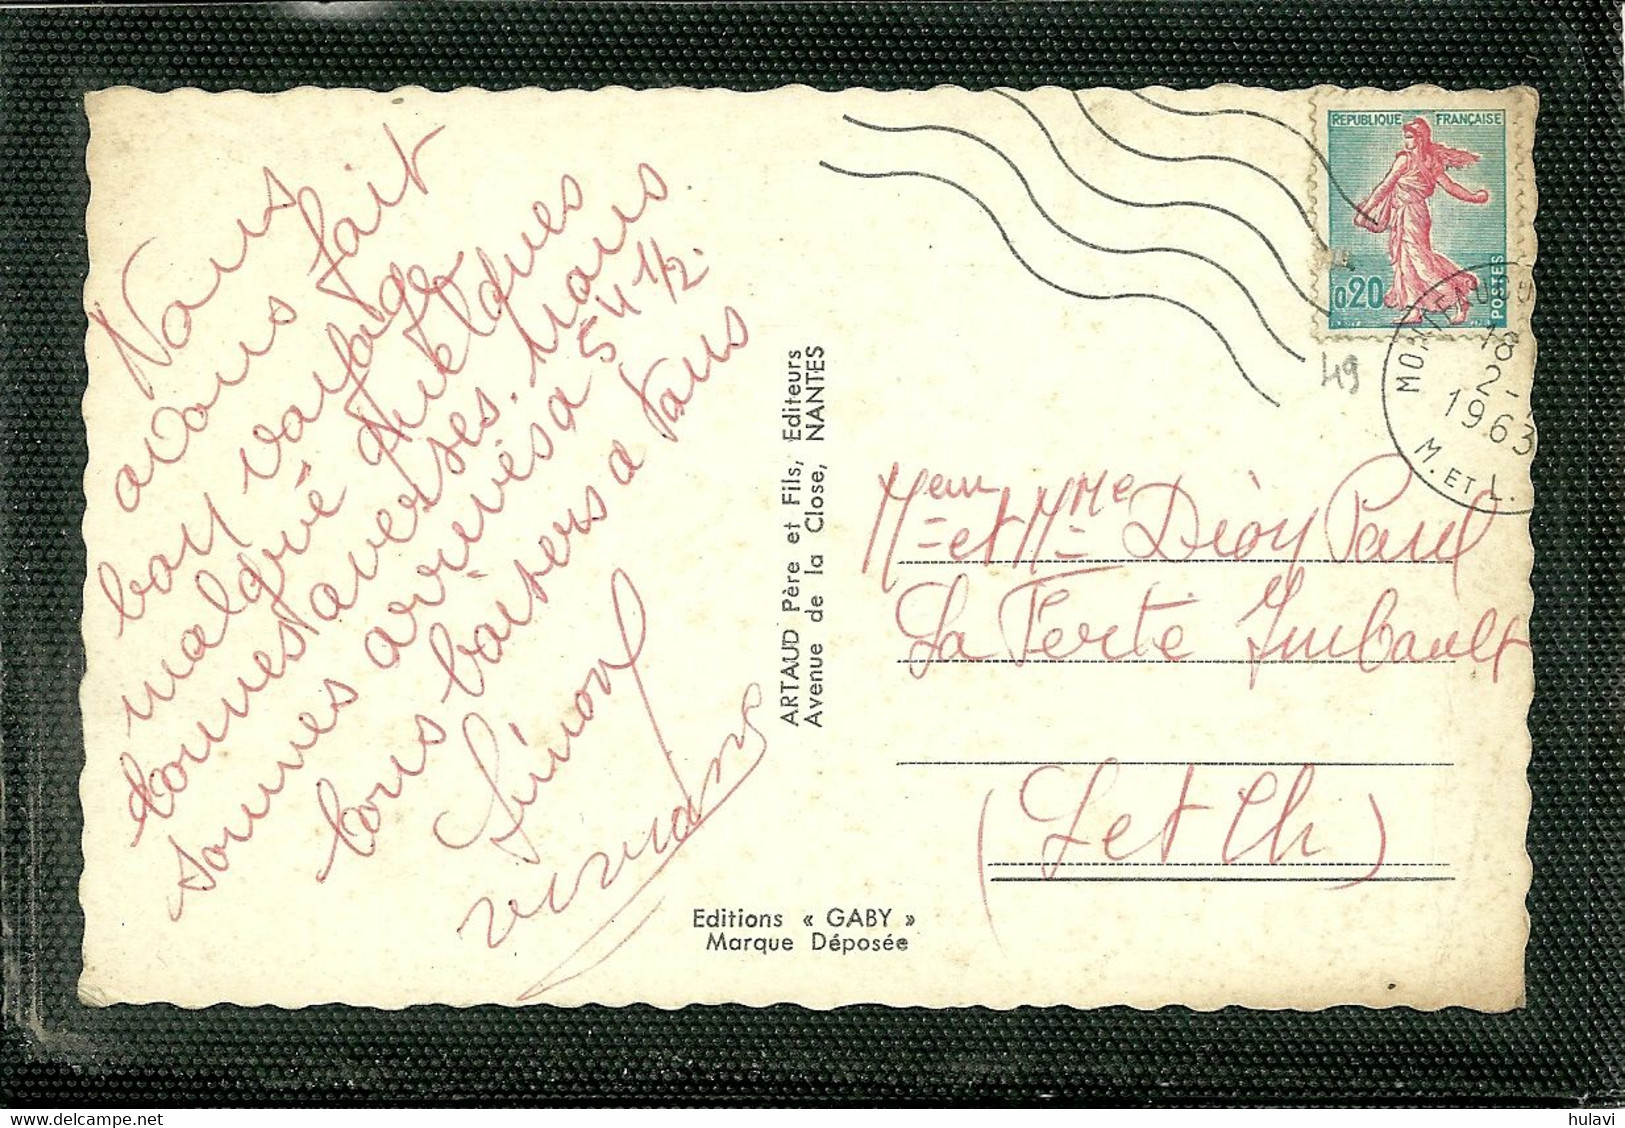 Nous
avons fait
bon voyage
malgré quelques
bonnes averses. Nous
sommes arrivés à 5H 1/2.
bons baisers à tous
Simone
ARTAUD Père et Fils, Editeurs
Avenue de la Close, NANTES
Editions « GABY »
Marque Déposée
REPUBLIQUE FRANÇAISE
0,20
POSTES
18
2-
1963
M. ET L.
49
Meur et Mme Dion Paul
La Ferté Imbault
(L et Ch)
hulavi